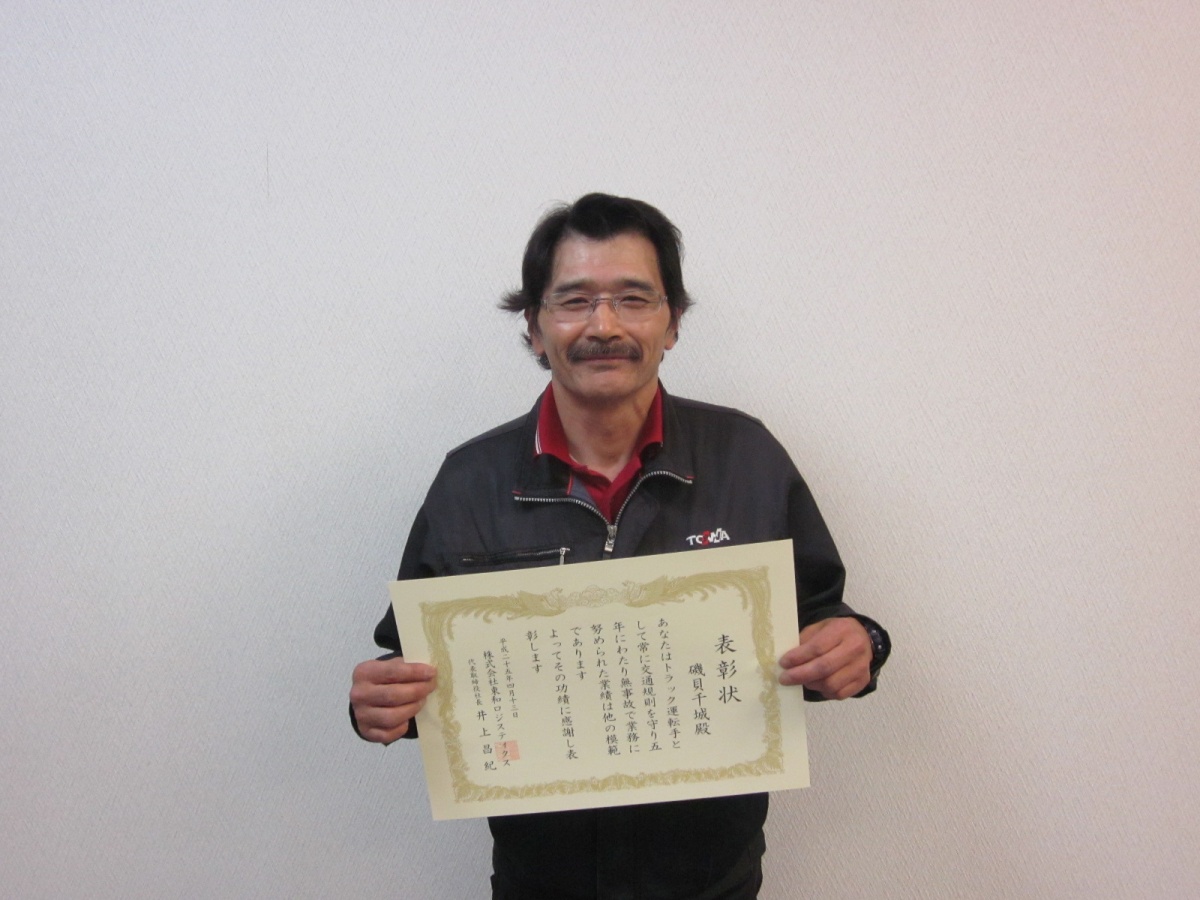 TOWA
表彰状
磯貝千城殿
あなたはトラック運転手と
して常に交通規則を守り五
年にわたり無事故で業務に
努められた業績は他の模範
であります
よってその功績に感謝し表
彰します
平成二十五年四月十三日
株式会社東和ロジスティクス
代表取締役社長 井上昌紀